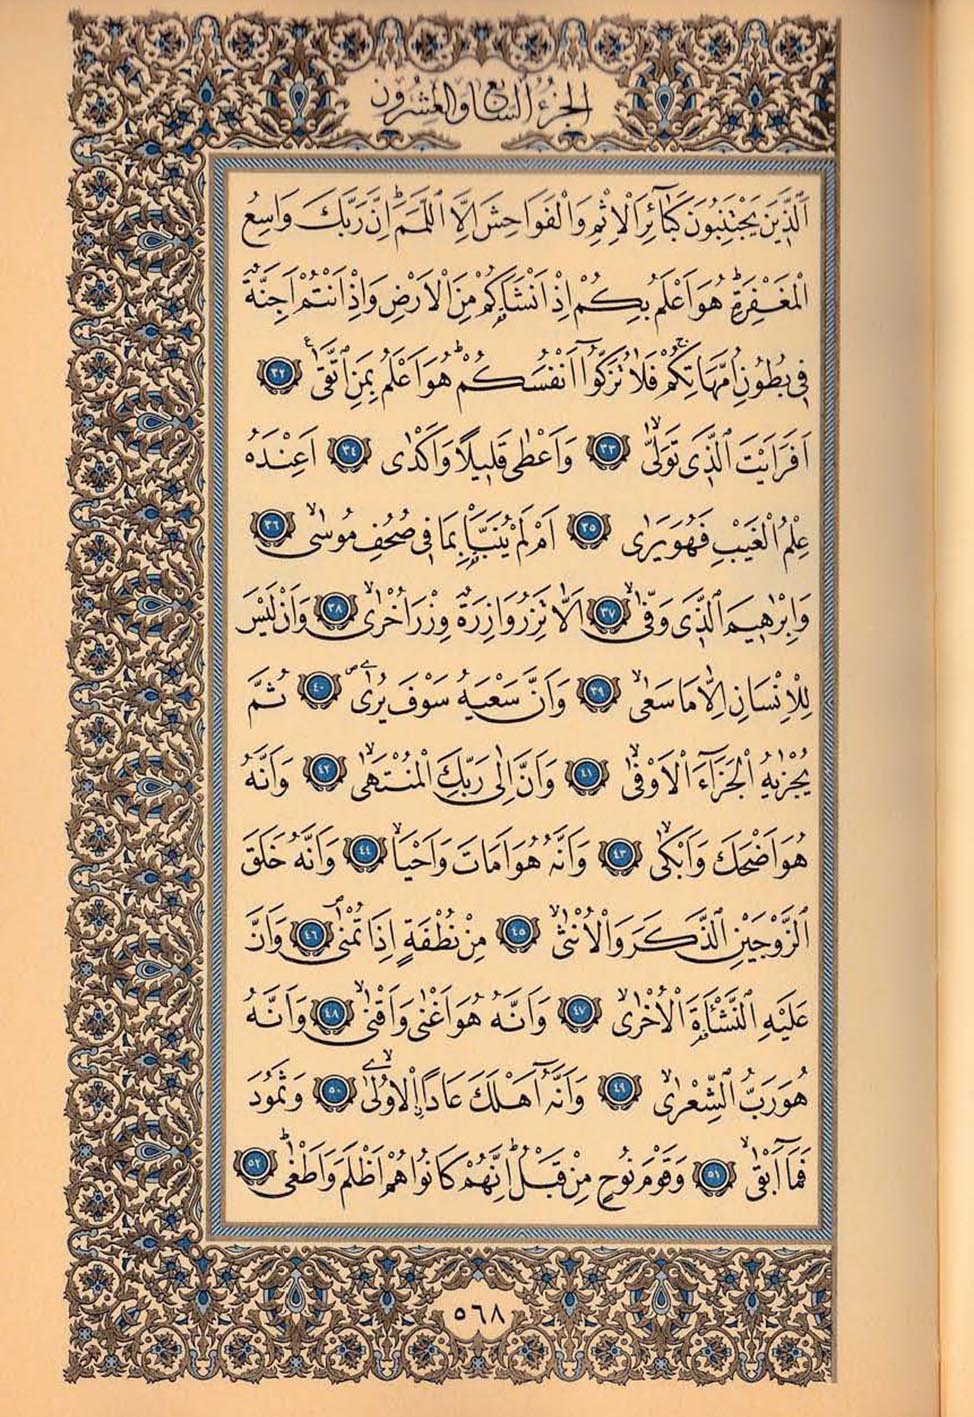 الجزء السابع والعشرون
اَلَّذ۪ينَ يَجْتَنِبُونَ كَبَٓائِرَ الْاِثْمِ وَالْفَوَاحِشَ اِلَّا اللَّمَمَۜ اِنَّ رَبَّكَ وَاسِعُ
الْمَغْفِرَةِۜ هُوَ اَعْلَمُ بِكُمْ اِذْ اَنْشَاَكُمْ مِنَ الْاَرْضِ وَاِذْ اَنْتُمْ اَجِنَّةٌ
ف۪ي بُطُونِ اُمَّهَاتِكُمْۚ فَلَا تُزَكُّٓوا اَنْفُسَكُمْۜ هُوَ اَعْلَمُ بِمَنِ اتَّقٰى۟ ﴿٣٢﴾
اَفَرَاَيْتَ الَّذ۪ي تَوَلّٰىۙ ﴿٣٣﴾ وَاَعْطٰى قَل۪يلًا وَاَكْدٰى ﴿٣٤﴾ اَعِنْدَهُ
عِلْمُ الْغَيْبِ فَهُوَ يَرٰى ﴿٣٥﴾ اَمْ لَمْ يُنَبَّأْ بِمَا ف۪ي صُحُفِ مُوسٰىۙ ﴿٣٦﴾
وَاِبْرٰه۪يمَ الَّذ۪ي وَفّٰىۙ ﴿٣٧﴾ اَلَّا تَزِرُ وَازِرَةٌ وِزْرَ اُخْرٰىۙ ﴿٣٨﴾ وَاَنْ لَيْسَ
لِلْاِنْسَانِ اِلَّا مَا سَعٰىۙ ﴿٣٩﴾ وَاَنَّ سَعْيَهُ سَوْفَ يُرٰىۖ ﴿٤٠﴾ ثُمَّ
يُجْزٰيهُ الْجَزَٓاءَ الْاَوْفٰىۙ ﴿٤١﴾ وَاَنَّ اِلٰى رَبِّكَ الْمُنْتَهٰىۙ ﴿٤٢﴾ وَاَنَّهُ
هُوَ اَضْحَكَ وَاَبْكٰىۙ ﴿٤٣﴾ وَاَنَّهُ هُوَ اَمَاتَ وَاَحْيَاۙ ﴿٤٤﴾ وَاَنَّهُ خَلَقَ
الزَّوْجَيْنِ الذَّكَرَ وَالْاُنْثٰىۙ ﴿٤٥﴾ مِنْ نُطْفَةٍ اِذَا تُمْنٰىۖ ﴿٤٦﴾ وَاَنَّ
عَلَيْهِ النَّشْاَةَ الْاُخْرٰىۙ ﴿٤٧﴾ وَاَنَّهُ هُوَ اَغْنٰى وَاَقْنٰىۙ ﴿٤٨﴾ وَاَنَّهُ
هُوَ رَبُّ الشِّعْرٰىۙ ﴿٤٩﴾ وَاَنَّهُٓ اَهْلَكَ عَادًاۨ الْاُو۫لٰىۙ ﴿٥٠﴾ وَثَمُودَ
فَمَٓا اَبْقٰىۙ ﴿٥١﴾ وَقَوْمَ نُوحٍ مِنْ قَبْلُۜ اِنَّهُمْ كَانُوا هُمْ اَظْلَمَ وَاَطْغٰىۜ ﴿٥٢﴾
٥٦٨